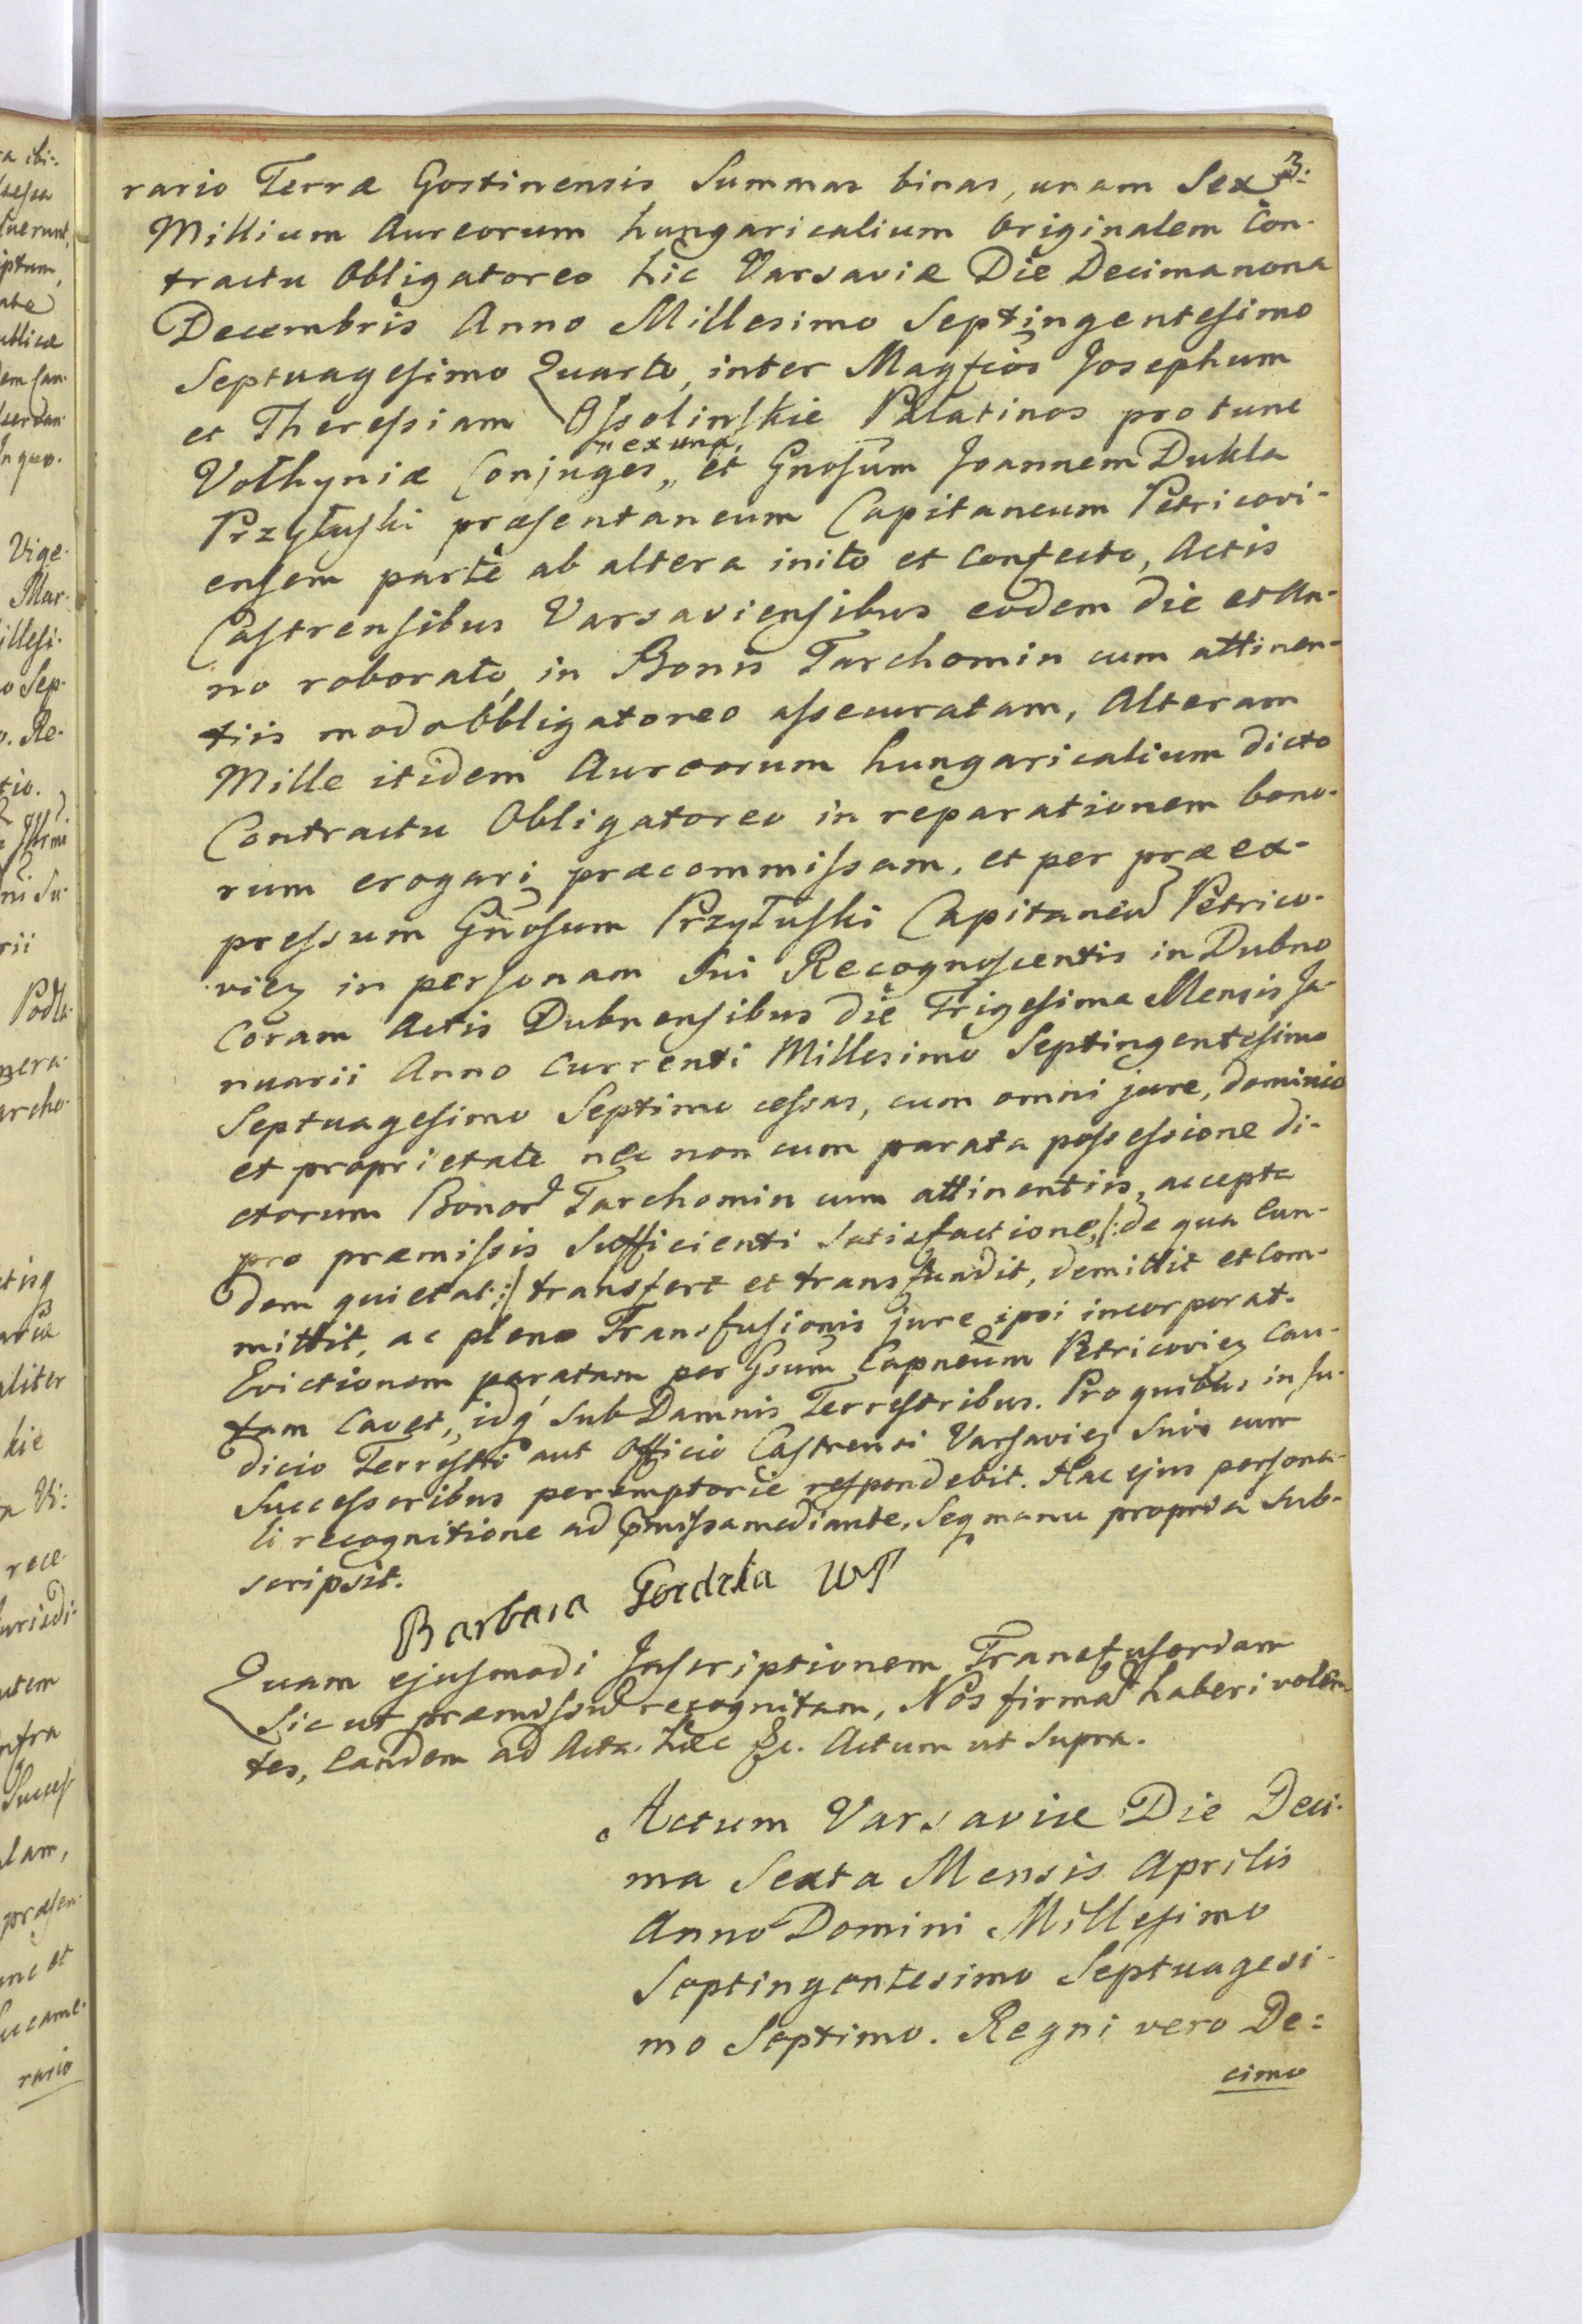 3.
rario Terræ Gostinensis Summas binas, unam Sex
Millium Aureorum hungaricalium Originalem Con-
tractu Obligatoreo hic Varsaviæ Die Decimanona
Decembris Anno Millesimo Septingentesimo
Septuagesimo Quarto, inter Magfcos Josephum
et Theressiam Ossolinskie Palatinos protunc
"ex una,
Volhyniæ Conjuges „ et Gnosum Joannem Dukla
Przyłuski præsentaneum Capitaneum Petricovi-
ensem parte ab altera inito et confecto, Actis
Castrensibus Varsaviensibus eodem die et An-
no roborato, in Bonis Tarchomin cum attinen-
tiis modo Obligatoreo assecuratam, Alteram
Mille itidem Aureorum hungaricalium dicto
Contractu Obligatoreo in reparationem bono-
rum erogari præcommissam, et per præex-
pressum Gnosum Przyłuski Capitaneu Petrico-
vien in personam Sui Recognoscentis in Dubno
Coram Actis Dubnensibus die Trigesima Mensis Ja-
nuarii Anno Currenti Millesimo Septingentesimo
Septuagesimo Septimo cessas, cum omni jure, dominio
et proprietate nec non cum parata possessione di-
ctorum Bonor Tarchomin cum attinentiis, accepta
pro præmissis Sufficienti Satisfactione, /: de qua Eun-
dem quietat :/ transfert et transfundit, demittit et com-
mittit, ac pleno Transfusionis jure ipsi incorporat.
Evictionem paratam per Gsum Capneum Petricovien Cau-
tam Cavet, idq Sub Damnis Terrestribus. Pro quibus in Ju-
dicio Terrestri aut Officio Castrensi Varsavien Suis cum
Successoribus peremptorie respondebit. Hac ejus persona-
li recognitione ad pmissa mediante, Seq manu propria Sub-
scripsit.
Barbara
Quam ejusmodi Inscriptionem Transfusoriam
Sic ut præmissu recognitam, Nos firma haberi volen-
tes, Eandem ad Acta hæc &c. Actum ut Supra.
Actum Varsaviæ Die Deci-
ma Sexta Mensis Aprilis
Anno Domini Millesimo
Septingentesimo Septuagesi-
mo Septimo. Regni vero De=
cimo